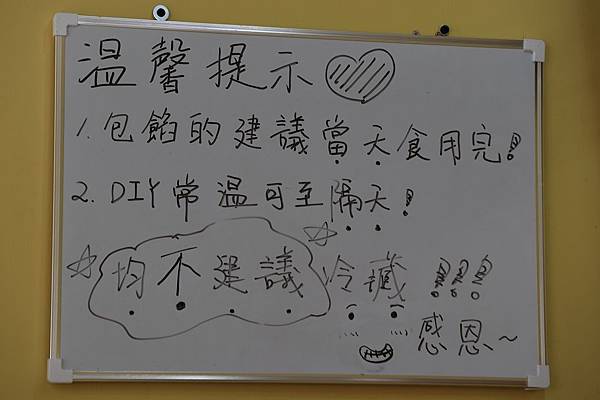 溫馨提示
1. 包餡的建議當天食用完!
2. DIY常溫可至隔天!
均不建議冷藏!!!
感恩~